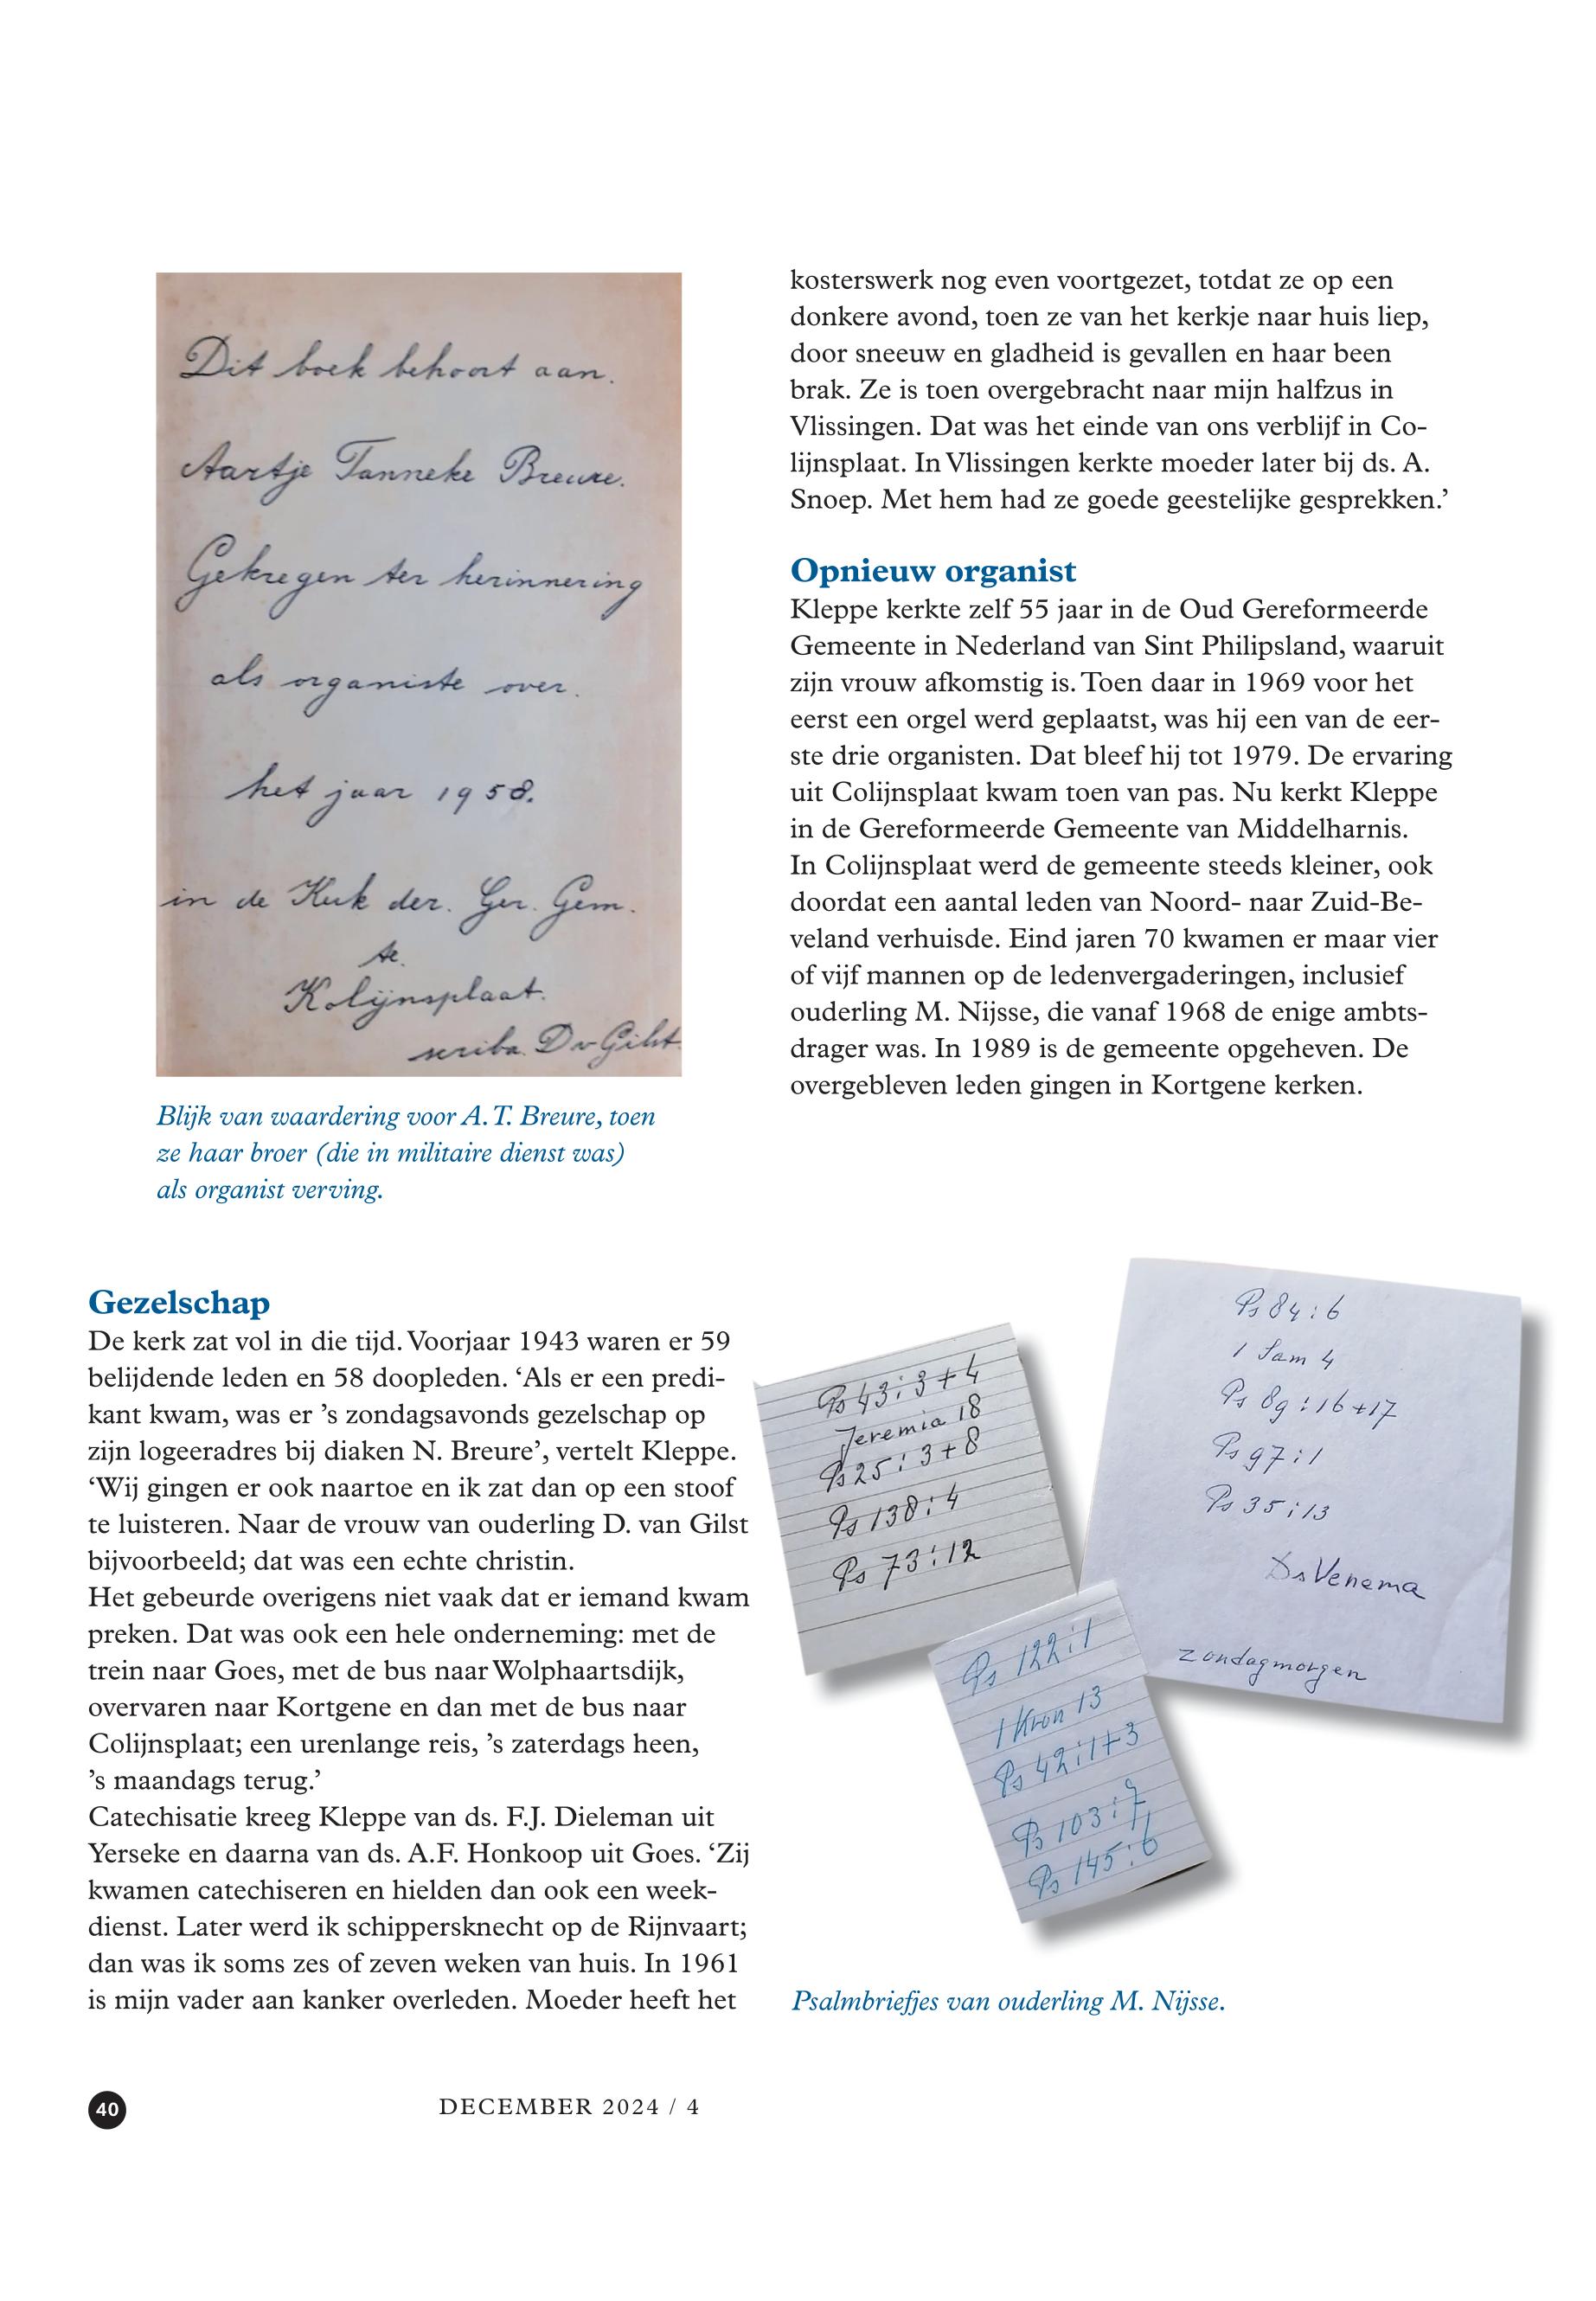 Dit boek behoort aan.
Aartje Tanneke Breure.
Gekregen ter herinnering
als organiste over.
het jaar 1958.
in de Kerk der. Ger. Gem.
te.
Kolijnsplaat.
scriba. D v Gilst.
Blijk van waardering voor A.T. Breure, toen
ze haar broer (die in militaire dienst was)
als organist verving.
Gezelschap
De kerk zat vol in die tijd. Voorjaar 1943 waren er 59
belijdende leden en 58 doopleden. ‘Als er een predi-
kant kwam, was er ’s zondagsavonds gezelschap op
zijn logeeradres bij diaken N. Breure’, vertelt Kleppe.
‘Wij gingen er ook naartoe en ik zat dan op een stoof
te luisteren. Naar de vrouw van ouderling D. van Gilst
bijvoorbeeld; dat was een echte christin.
Het gebeurde overigens niet vaak dat er iemand kwam
preken. Dat was ook een hele onderneming: met de
trein naar Goes, met de bus naar Wolphaartsdijk,
overvaren naar Kortgene en dan met de bus naar
Colijnsplaat; een urenlange reis, ’s zaterdags heen,
’s maandags terug.’
Catechisatie kreeg Kleppe van ds. F.J. Dieleman uit
Yerseke en daarna van ds. A.F. Honkoop uit Goes. ‘Zij
kwamen catechiseren en hielden dan ook een week-
dienst. Later werd ik schippersknecht op de Rijnvaart;
dan was ik soms zes of zeven weken van huis. In 1961
is mijn vader aan kanker overleden. Moeder heeft het
kosterswerk nog even voortgezet, totdat ze op een
donkere avond, toen ze van het kerkje naar huis liep,
door sneeuw en gladheid is gevallen en haar been
brak. Ze is toen overgebracht naar mijn halfzus in
Vlissingen. Dat was het einde van ons verblijf in Co-
lijnsplaat. In Vlissingen kerkte moeder later bij ds. A.
Snoep. Met hem had ze goede geestelijke gesprekken.’
Opnieuw organist
Kleppe kerkte zelf 55 jaar in de Oud Gereformeerde
Gemeente in Nederland van Sint Philipsland, waaruit
zijn vrouw afkomstig is. Toen daar in 1969 voor het
eerst een orgel werd geplaatst, was hij een van de eer-
ste drie organisten. Dat bleef hij tot 1979. De ervaring
uit Colijnsplaat kwam toen van pas. Nu kerkt Kleppe
in de Gereformeerde Gemeente van Middelharnis.
In Colijnsplaat werd de gemeente steeds kleiner, ook
doordat een aantal leden van Noord- naar Zuid-Be-
veland verhuisde. Eind jaren 70 kwamen er maar vier
of vijf mannen op de ledenvergaderingen, inclusief
ouderling M. Nijsse, die vanaf 1968 de enige ambts-
drager was. In 1989 is de gemeente opgeheven. De
overgebleven leden gingen in Kortgene kerken.
Ps 43:3+4
Jeremia 18
Ps 25:3+8
Ps 138:4
Ps 73:12
Ps 84:6
1 Sam 4
Ps 89:16+17
Ps 97:1
Ps 35:13
Ds Venema
zondagmorgen
Ps 122:1
1 Kron 13
Ps 42:1+3
Ps 103:7
9
Ps 145:6
Psalmbriefjes van ouderling M. Nijsse.
40
DECEMBER 2024 / 4